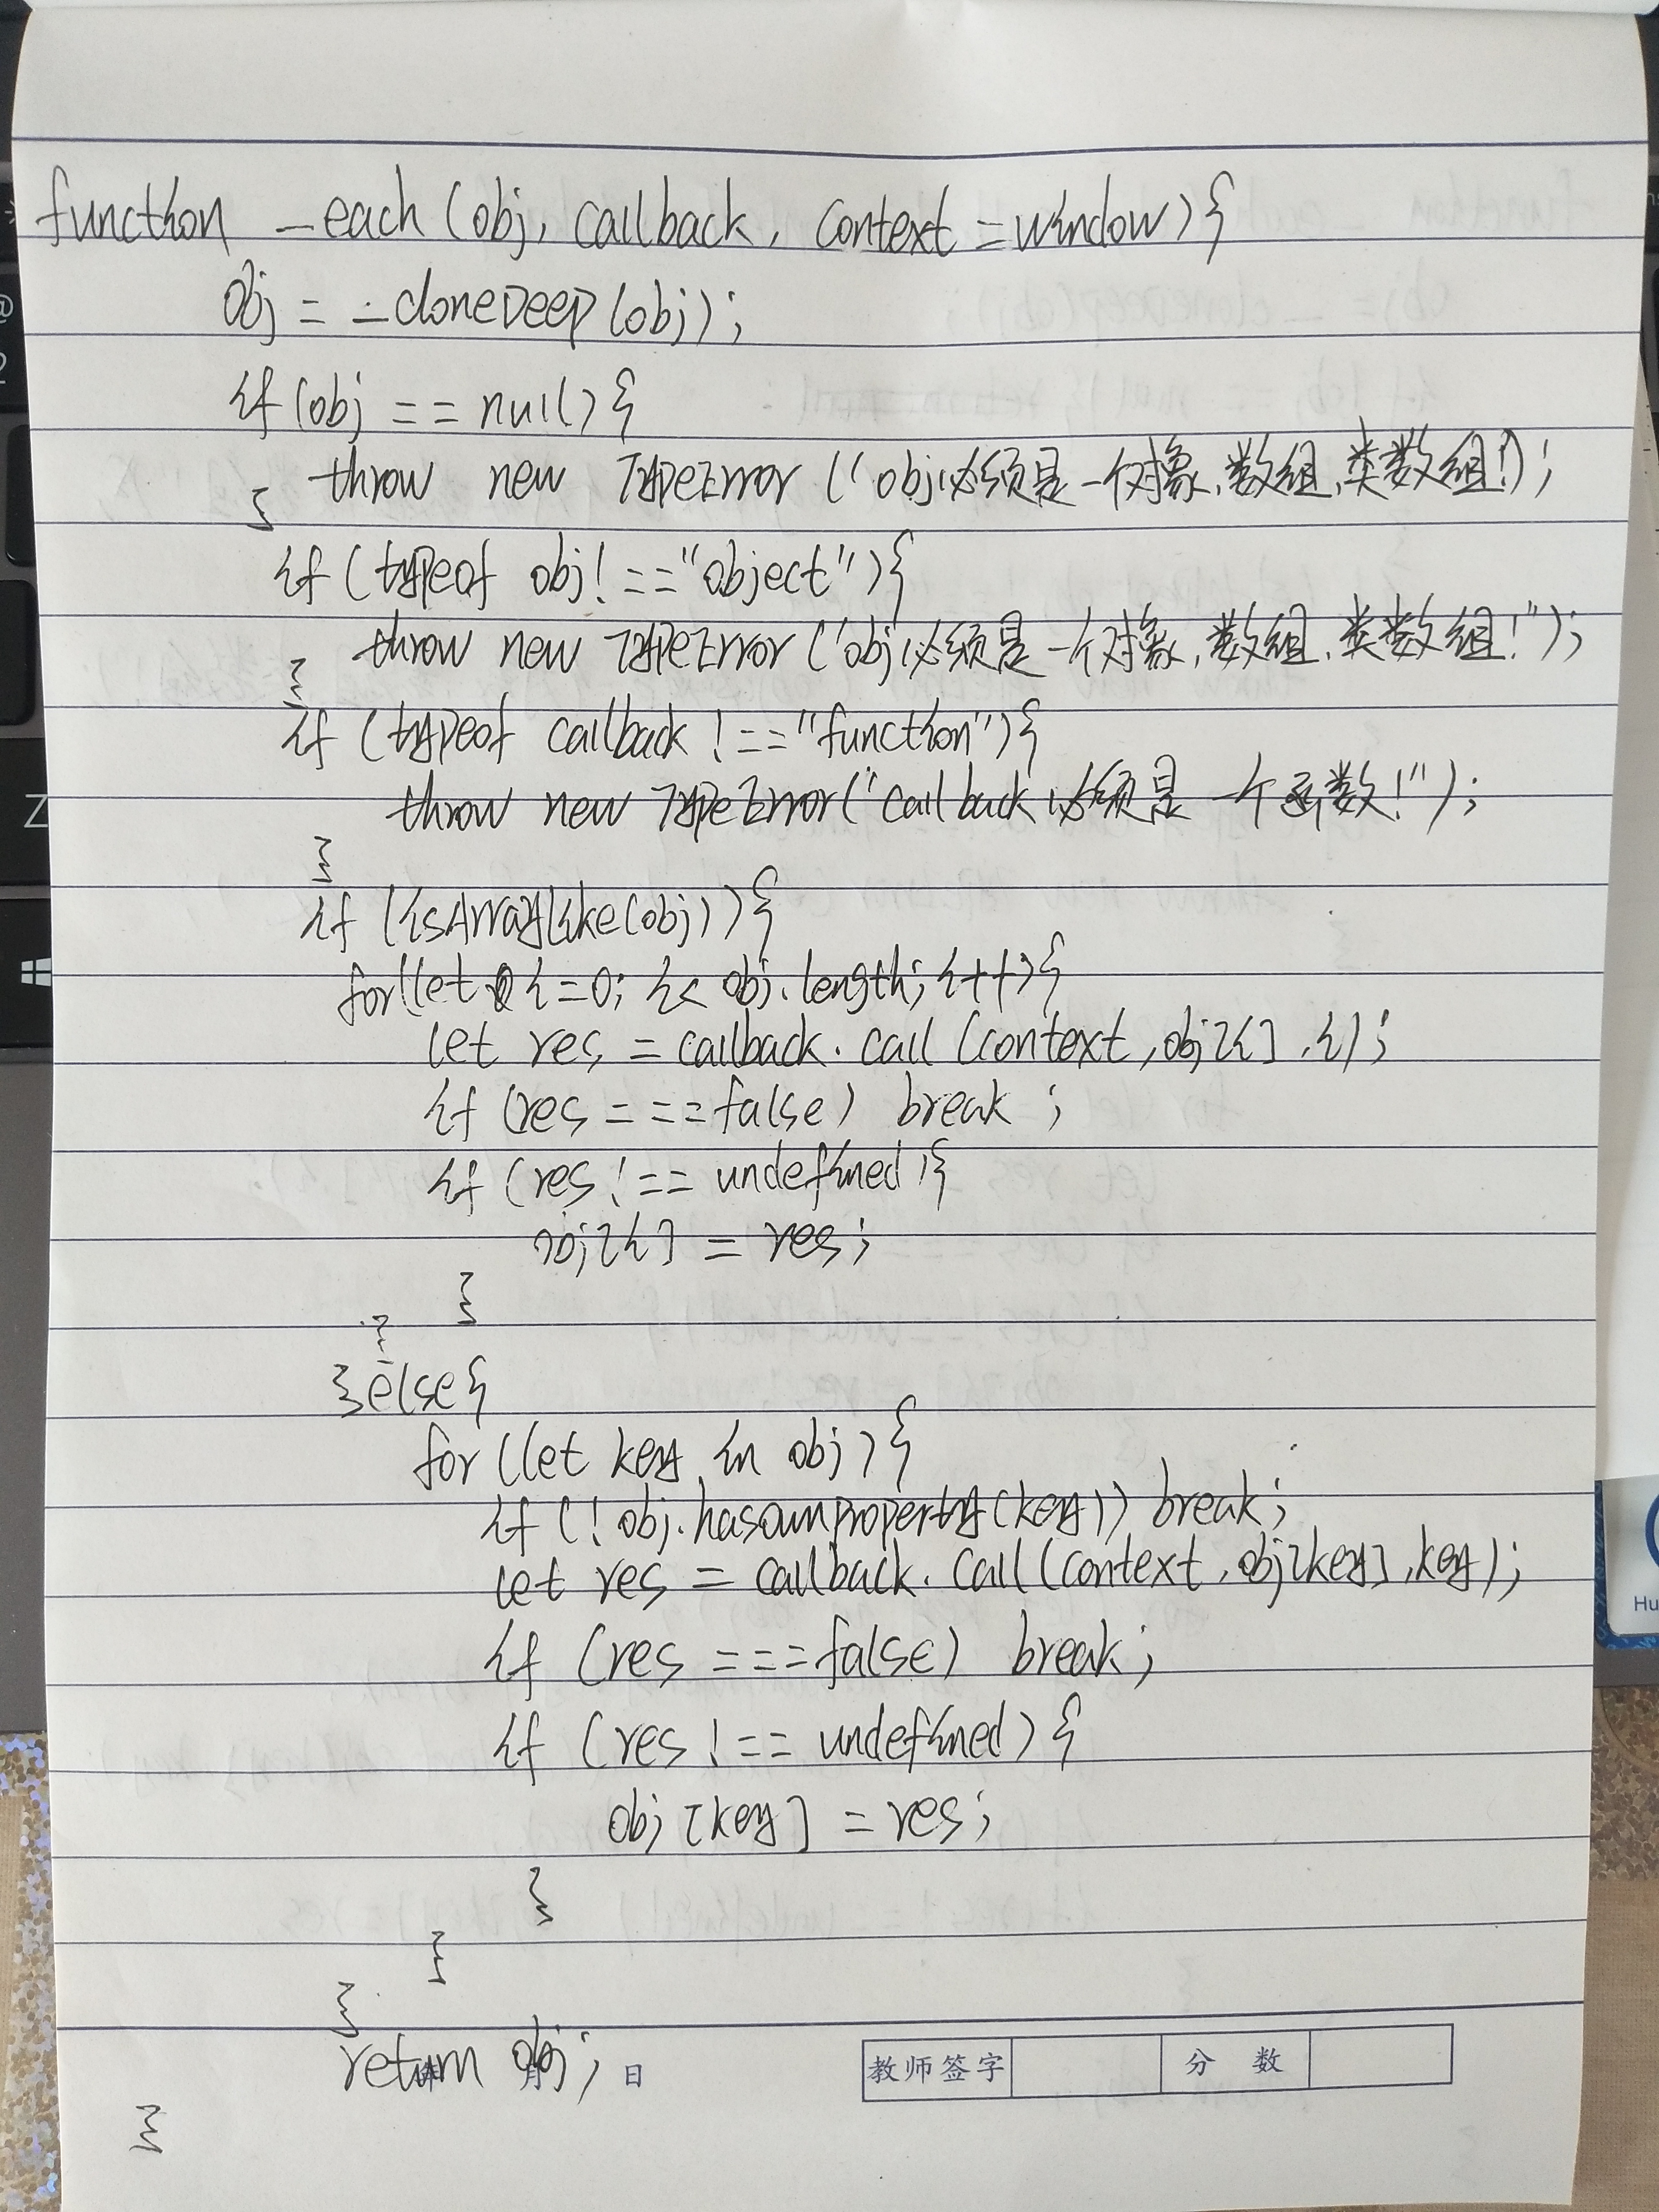 function _each(obj, callback, context=window){
obj = _cloneDeep(obj);
if(obj == null){
throw new TypeError("obj必须是一个对象,数组,类数组!");
}
if(typeof obj!=="object"){
throw new TypeError("obj必须是一个对象,数组,类数组!");
}
if(typeof callback !=="function"){
throw new TypeError("callback必须是一个函数!");
}
if(isArrayLike(obj)){
for(let i=0; i< obj.length; i++){
let res = callback.call(context,obj[i],i);
if(res===false) break;
if(res!== undefined){
obj[i] = res;
}
}
}else{
for(let key in obj){
if(!obj.hasOwnProperty(key)) break;
let res = callback.call(context,obj[key],key);
if(res===false) break;
if(res!== undefined){
obj[key] = res;
}
}
}
return obj;
月 日 教师签字 分数
}
Z
2
@
Hu